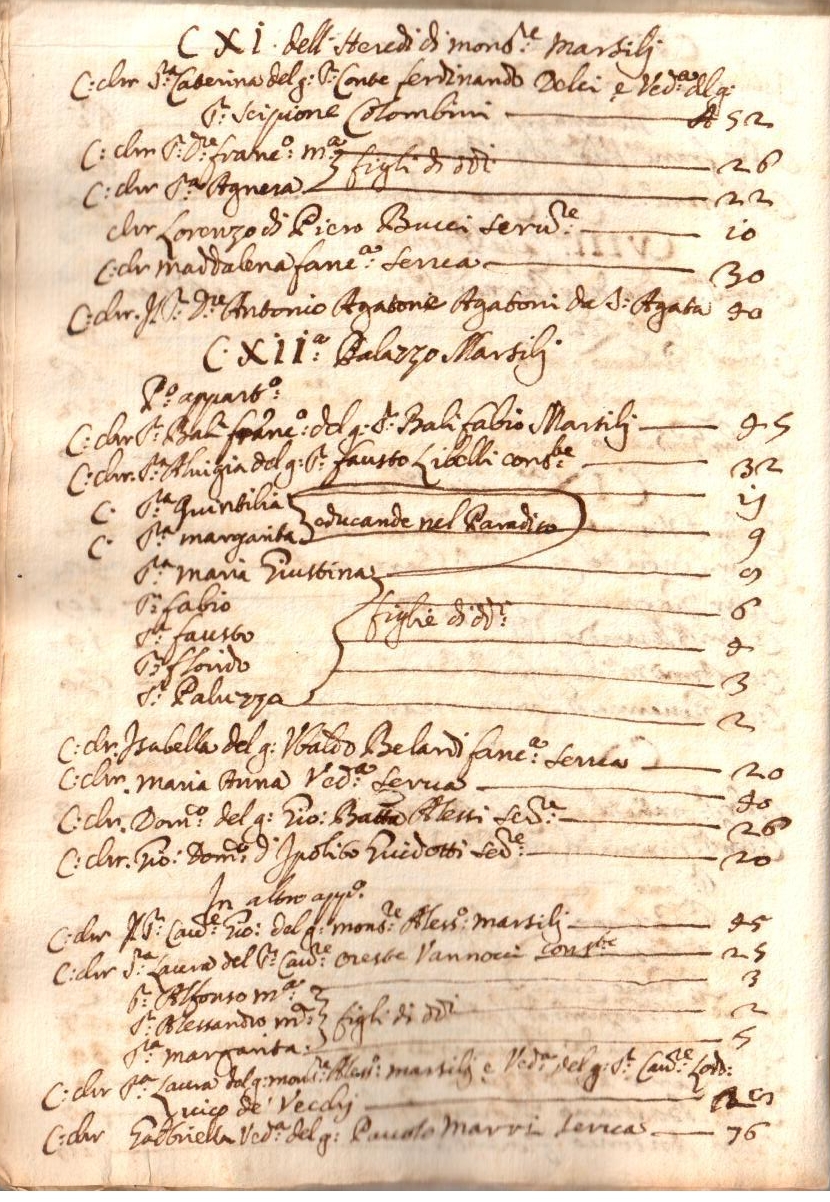 C XI. dell'Heredi di mons.re Marsilj
C: chr S.ra Caterina del g: S.r Conte ferdinando Delci e Ved.a del g:
S.r Scipione Colombini 52
C: chr S.r D.re franc.o m.a figli di dd.i 26
C: chr S.ra Agnesa 22
chr Lorenzo di Piero Bucci Serv.re 10
C: chr Maddalena fanc.a Serva 30
C: chr. Il S.r D.re Antonio Agatone Agatoni da S: Agata 40
C. XII.a Palazzo Marsilj
P.o appart.o:
C: chr S.r Balì franc.o: del g: S.r Balì fabio Marsilj 45
C: chr. S.ra Aluigia del g: S.r fausto Libelli cons.te 32
C. S.ra Quintilia 11
educande nel Paradiso
C. S.ra margarita 9
S.ra maria Giustina 9
S.r fabio 6
figlie di dd.i
S.r fausto 4
S.r florido 3
S.r Paluzzo 2
C: chr. Isabella del g: Ubaldo Belardi fanc.a Serva 20
C: chr. Maria Anna Ved.a Serva 40
C: chr. Dom.o del g: Gio: Batta Alessi Ser.re 26
C: chr. Gio: Dom.o d'Ipolito Guidotti Ser.re 20
In altro app.o
C: chr Il S.r Cav.re Gio: del g: mons.re Aless.o: Marsilj 45
C: chr S.ra Laura del S.r Cav.re Oreste Vannocci cons.te 25
S.r Alfonso m.a 3
S.r Alessandro m.a figli di dd.i 2
S.ra margarita 5
C: chr S.ra Laura del g: mons.re Aless.o: marsilj e Ved.a del g: S.r Cav.re Lod:
vico de' Vecchj
C: chr Gabbriella Ved.a del g: Pavolo Marri Serva 76